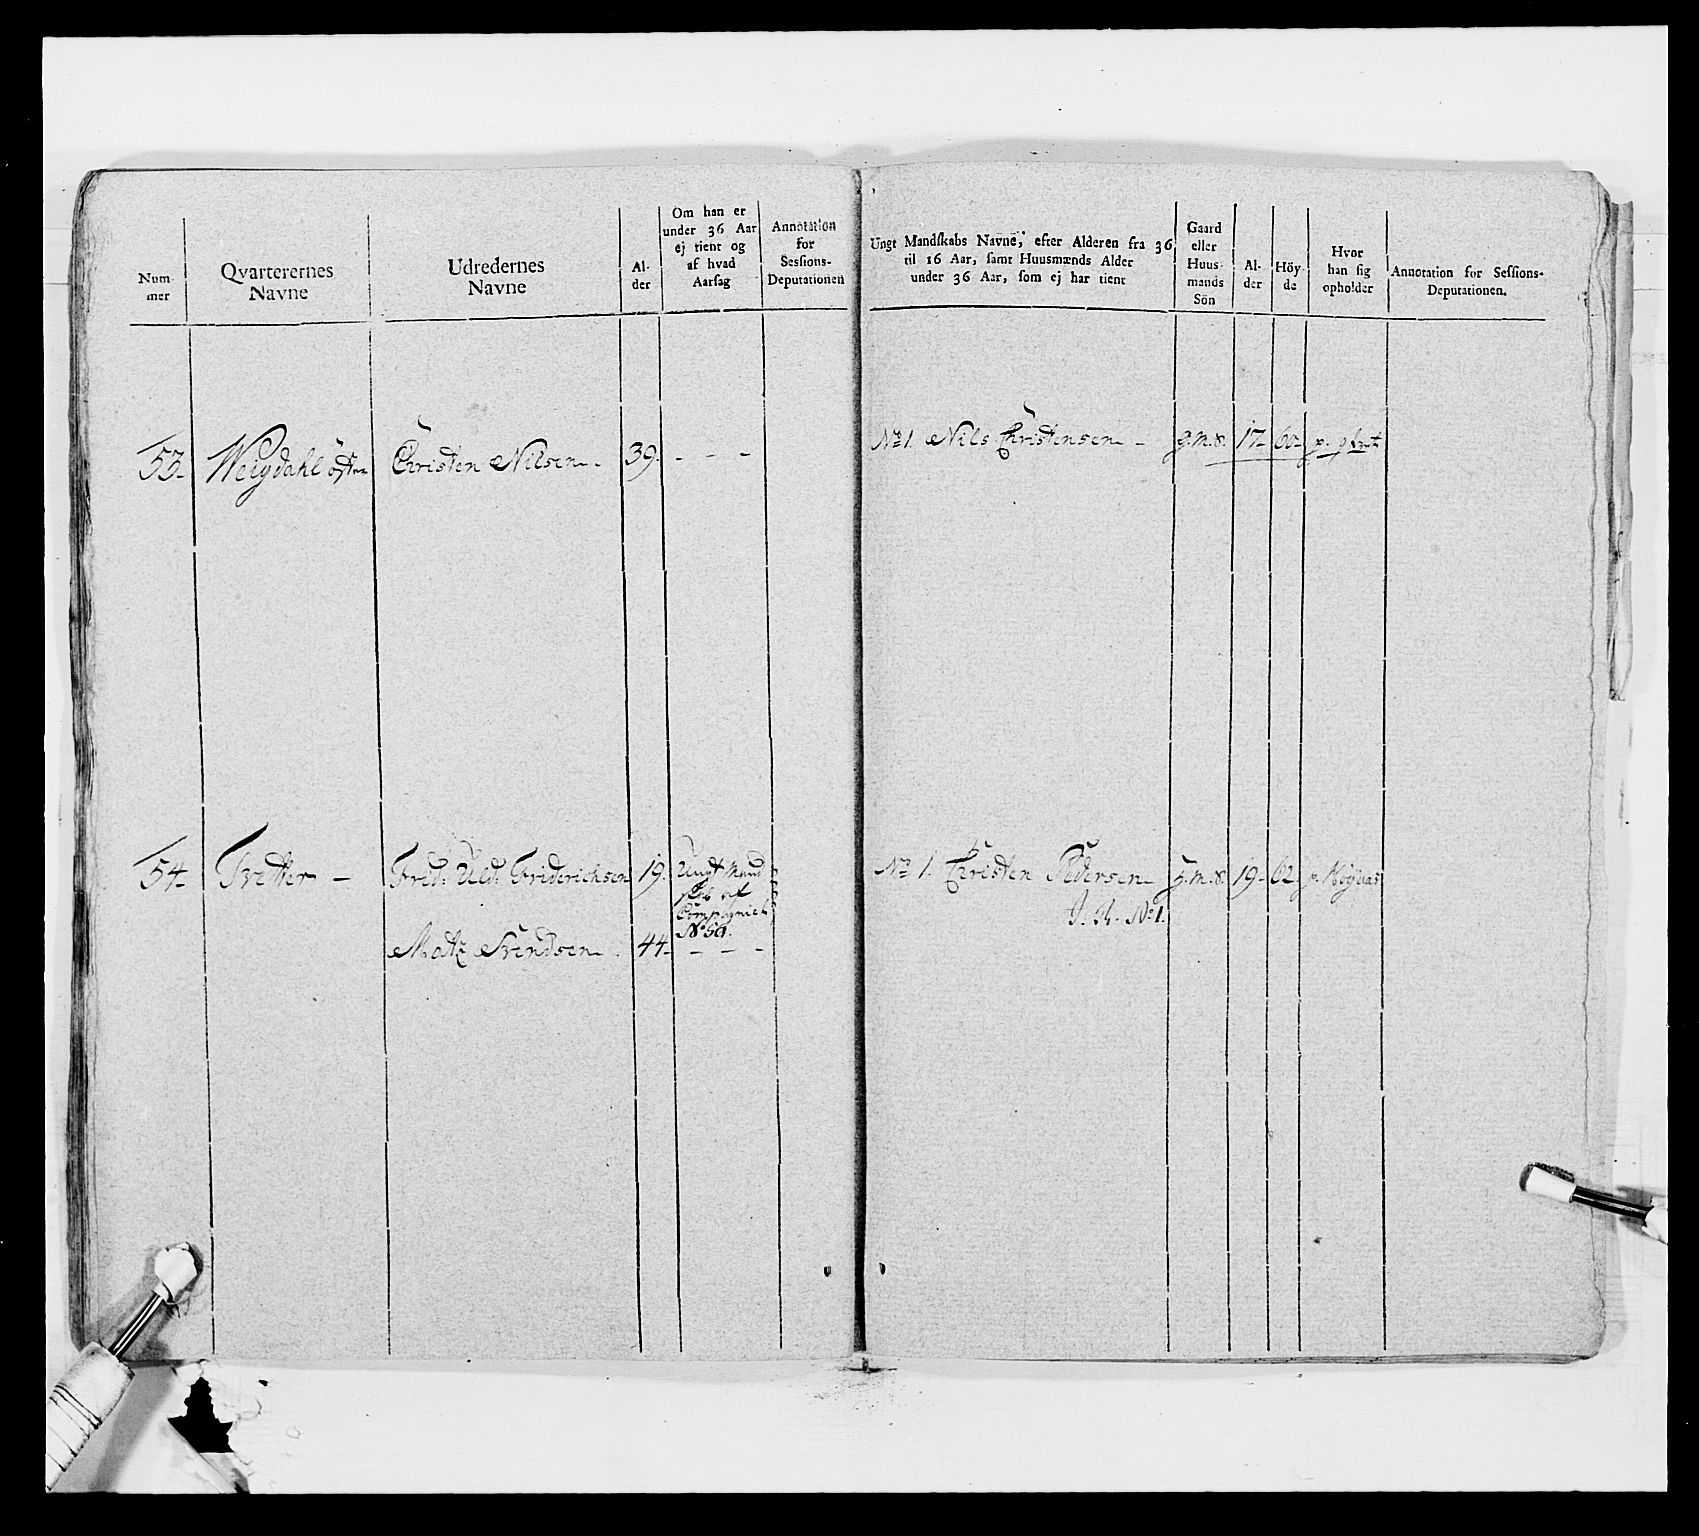 Num-
mer
Qvarterernes
Navne
Udredernes
Navne
Al-
der
Om han er
under 36 Aar
ej tient og
af hvad
Aarsag
Annotation
for
Sessions-
Deputationen
53. Weigdahl öster Christen Nilsen 39. - - -
54. Tvetter - Frid: Uld: Friderichsen 19. Ungt Mand
skab af
Compagniet
No 59.
Matz Svendsen 44. - - -
Ungt Mandskabs Navne, efter Alderen fra 36
til 16 Aar, samt Huusmænds Alder
under 36 Aar, som ej har tient
Gaard
eller
Huus-
mands
Sön
Al-
der
Höy-
de
Hvor
han sig
opholder
Annotation for Sessions-
Deputationen.
No 1. Nils Christensen - g.m.s. 17- 60- p. qvrt
No 1. Christen Pedersen g.m.s. 19- 62
J. R. No 1.